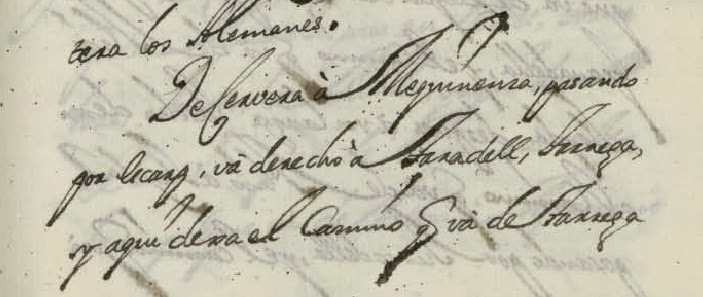 tera los Alemanes.
De Cervera à Mequinenza, pasando
por và derecho à Taradell, Tarrega,
y aqui dexa el Camino q̃ và de Tarrega